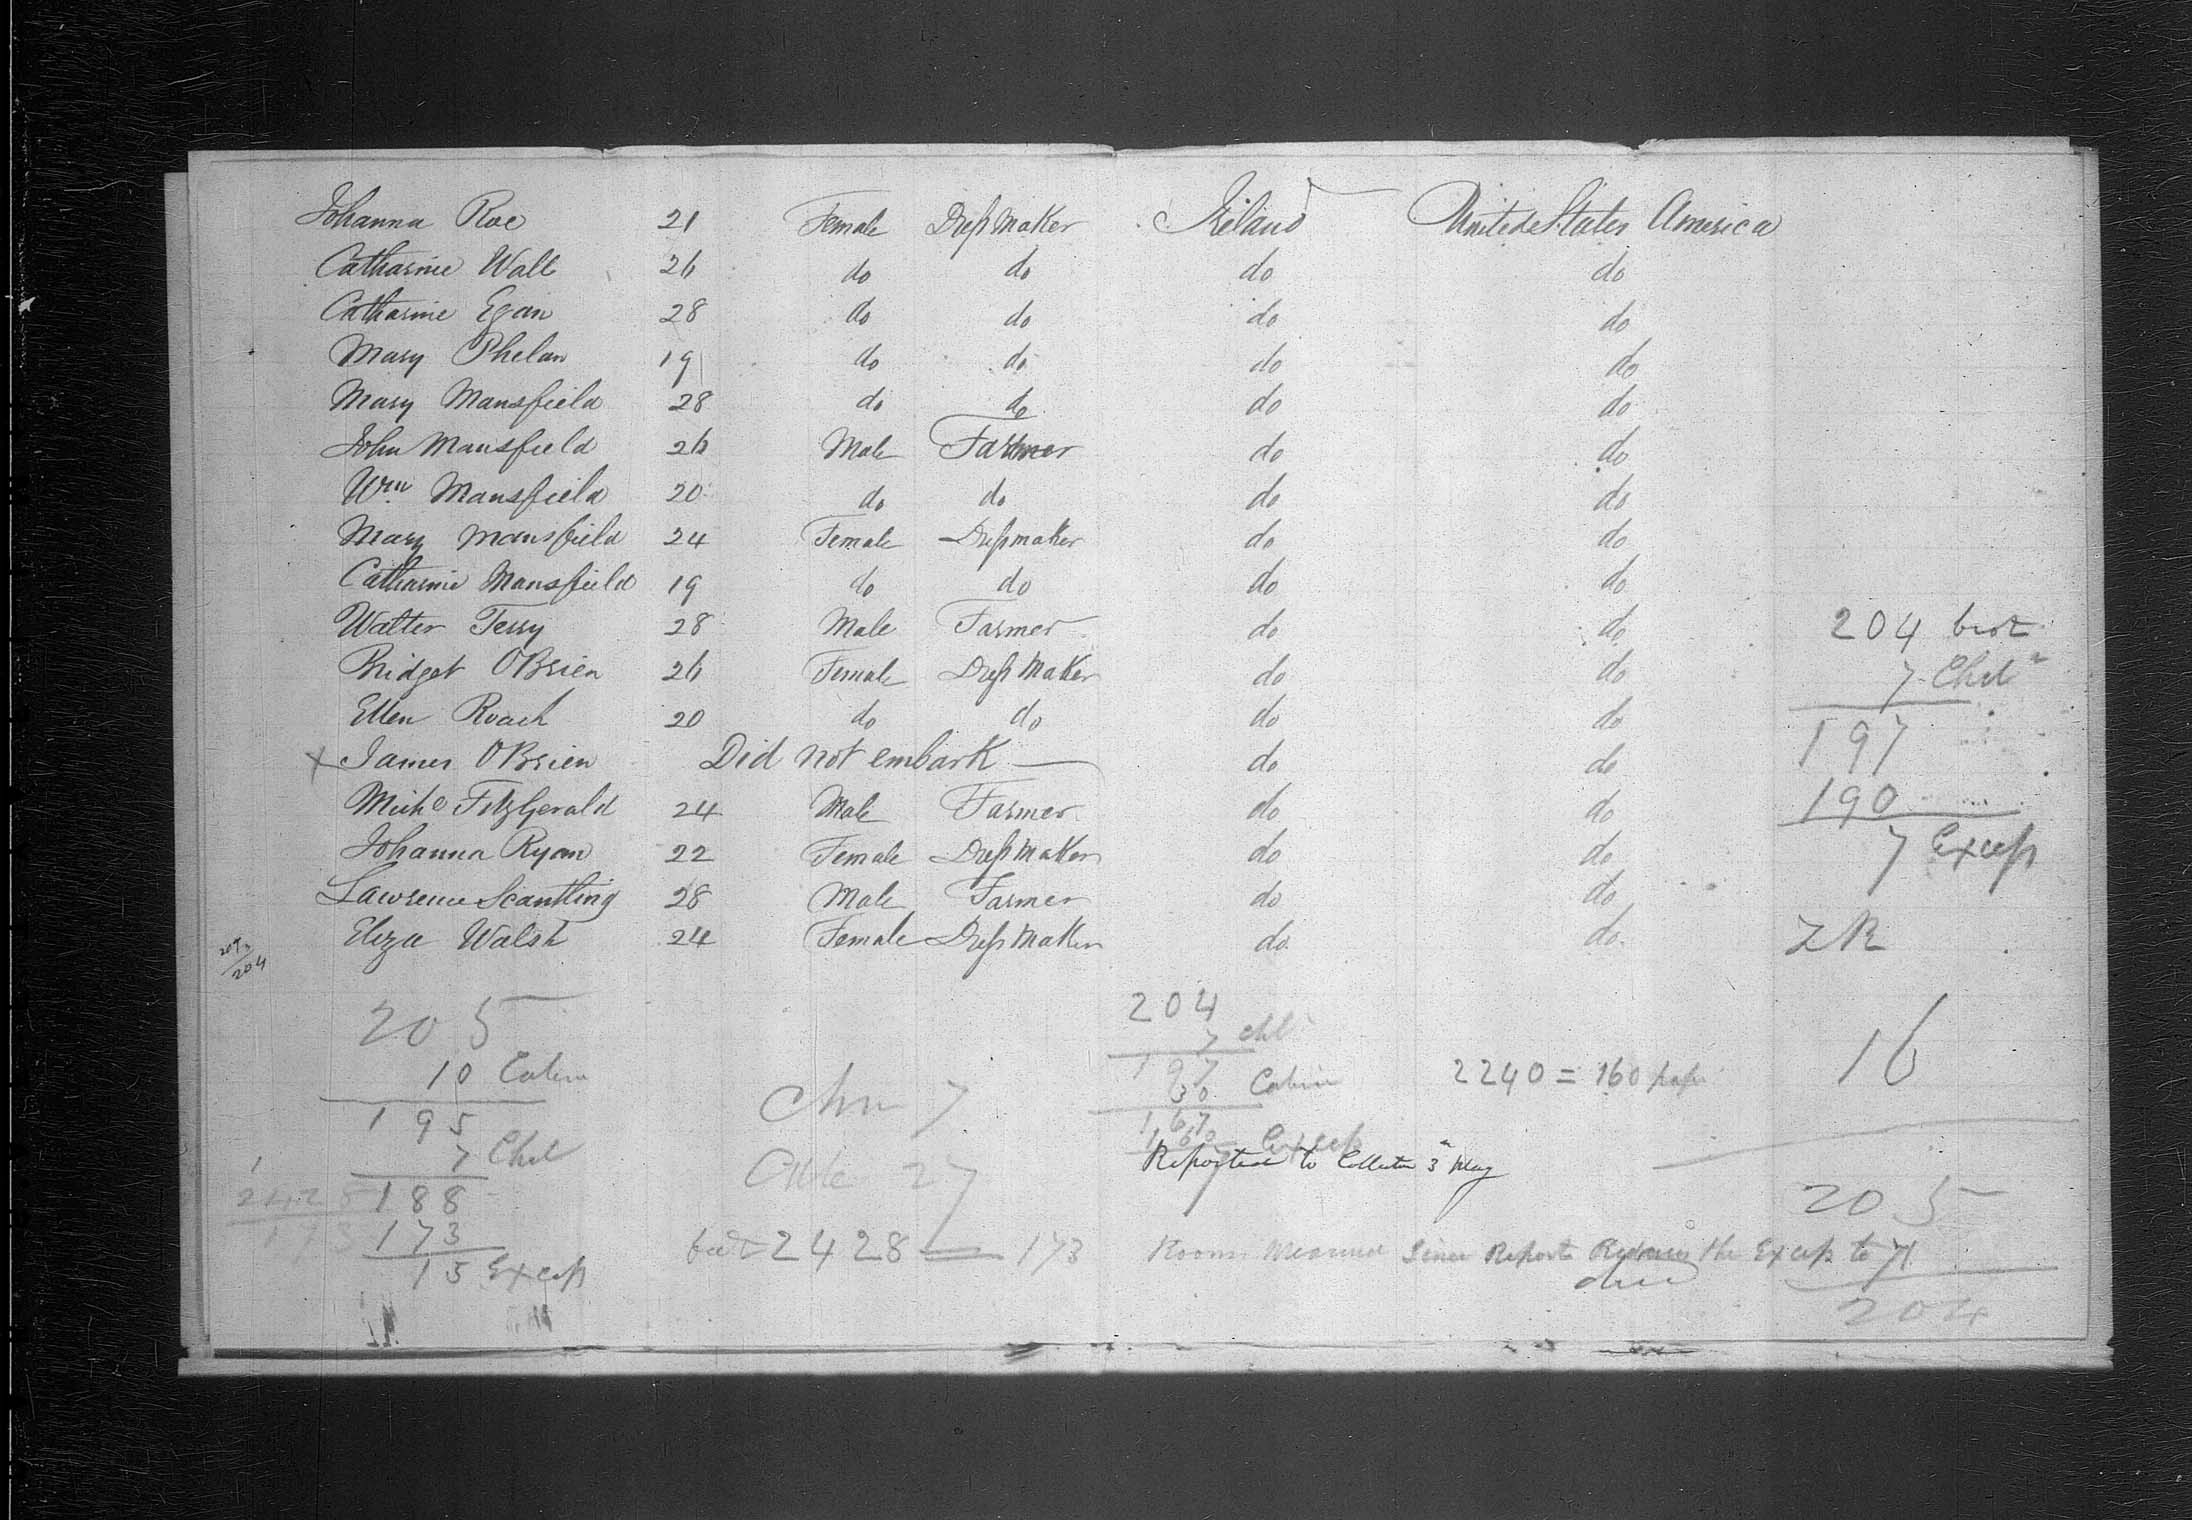 Johanna Roe 21 Female Dressmaker Ireland United States America
Catharine Wall 26 do do do do
Catharine Egan 28 do do do do
Mary Phelan 19 do do do do
Mary Mansfield 28 do do do do
John Mansfield 26 Male Farmer do do
Wm Mansfield 20 do do do do
Mary Mansfield 24 Female Dressmaker do do
Catharine Mansfield 19 do do do do
Walter Terry 28 Male Farmer do do
204
Bridget OBrien 26 Female Dress Maker do do
7 Chil
Ellen Roach 20 do do do do
197
X James OBrien Did not embark do do
190
Miche FitzGerald 24 Male Farmer do do
7 Excess
Johanna Ryan 22 Female Dressmaker do do
Lawrence Scantling 28 Male Farmer do do
Eliza Walsh 24 Female Dress Maker do do
204
205
10 Cabin
195
7 Chil
188
173
15 Excess
7
27
2428 = 173
204
7 chil
197
30 Cabin
167
160
Excess
7
Reported to Collector 3 May
2240 = 160
Room Measured Since Report Reduces the Excess to 7
16
205
1
204